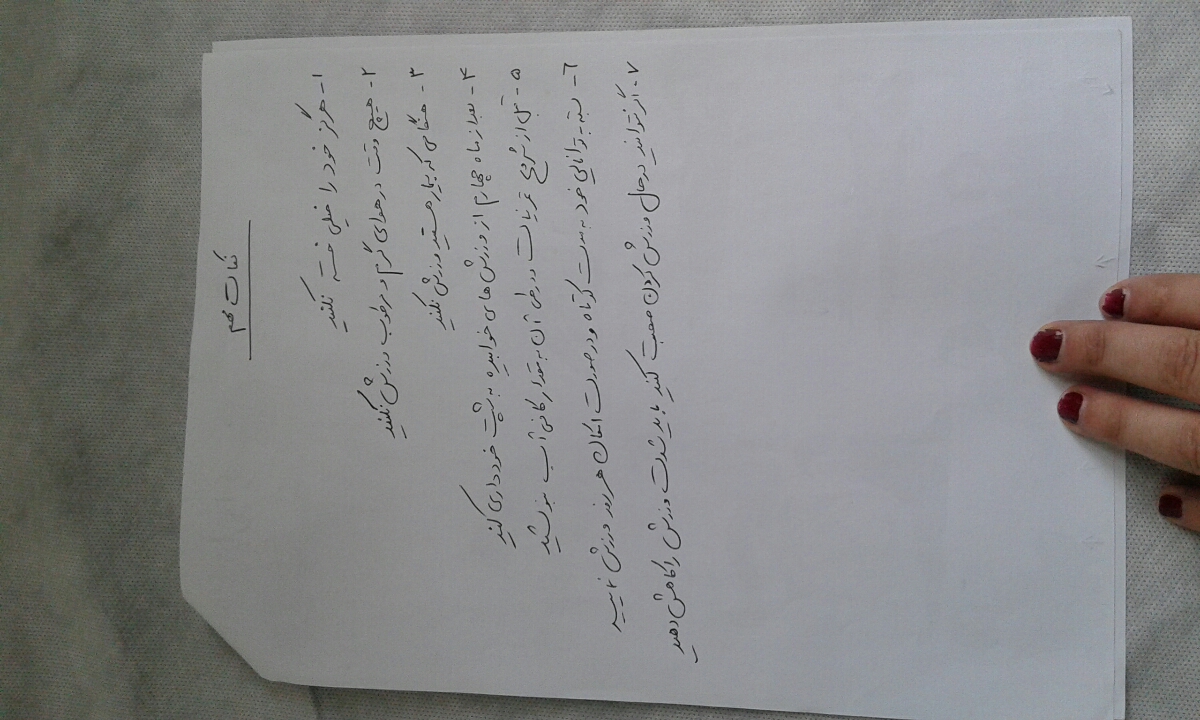 نکات مهم
۱- هرگز خود را خیلی خسته نکنید
۲- هیچ وقت در هوای گرم و مرطوب ورزش نکنید
۳- هنگامی که بیمار هستید ورزش نکنید
۴- بعد از ماه چهارم از ورزش های خوابیده به پشت خودداری کنید
۵- قبل از شروع تمرینات و در طی آن به مقدار کافی آب بنوشید
۶- بسته به توانایی خود به مدت کوتاه و در صورت امکان هر روز ورزش نمایید
۷- اگر نتوانید در حال ورزش کردن صحبت کنید باید شدت ورزش را کاهش دهید